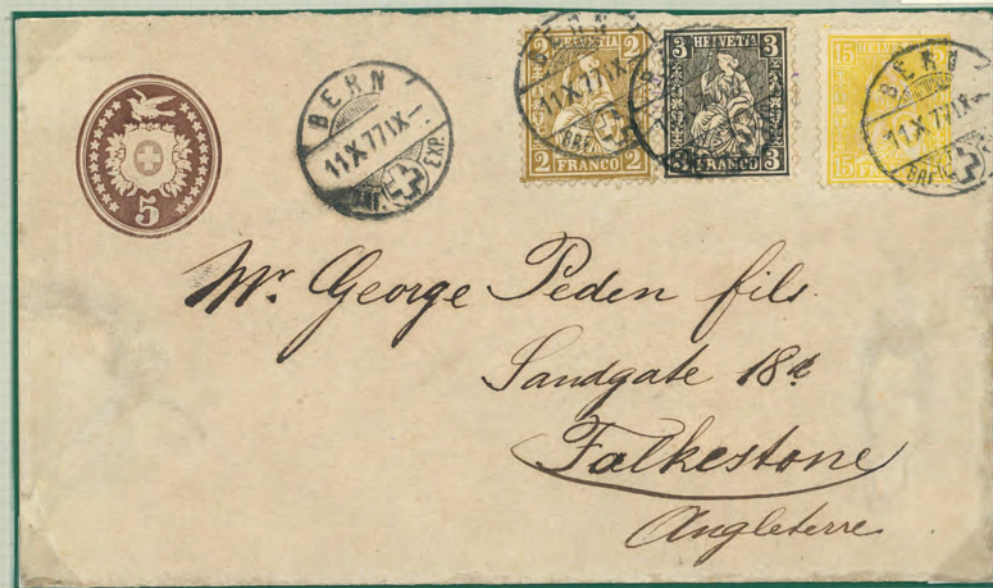 5
BERN
11.X.77.IX-
BRF. EXP.
2 HELVETIA 2
2 FRANCO 2
BERN
11.X.77.IX
BRF.
3 HELVETIA 3
3 FRANCO 3
15 HELVE
15 FR
BERN
11.X.77.IX-
BRF.
Mr. George Peden fils.
Sandgate 18d
Falkestone
Angleterre